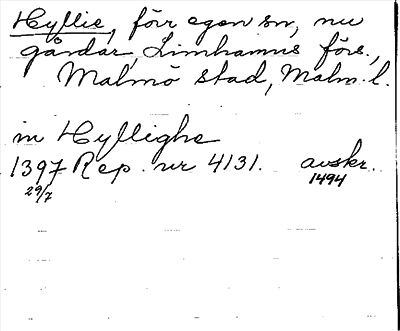 Hyllie, förr egen sn, nu
gårdar, Limhamns förs.,
Malmö stad, Malm. l.
in Hyllighe
1397 Rep. nr 4131. avskr.
29/7 1494